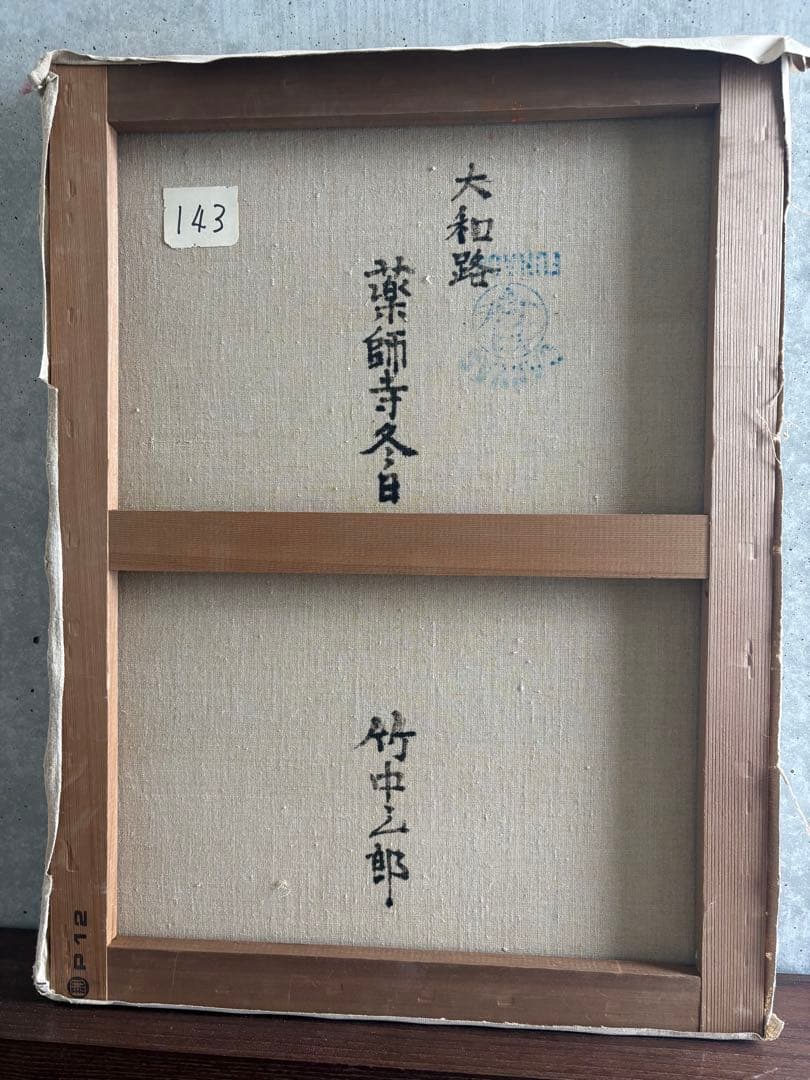 143
大和路
薬師寺冬日
竹中三郎
P12
FUNAOKA
CANVAS